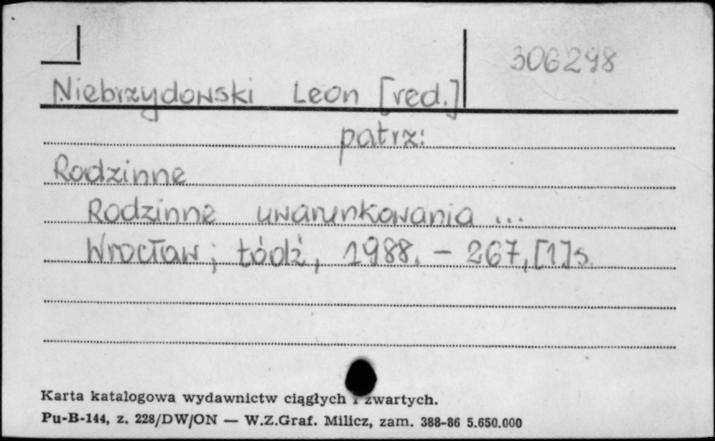 306298
Niebrzydowski Leon [red.]
patrz:
Rodzinne
Rodzinne uwarunkowania ...
Wrocław; Łódź, 1988. - 267,[1]s.
Karta katalogowa wydawnictw ciągłych i zwartych.
Pu-B-144, z. 228/DW/ON — W.Z.Graf. Milicz, zam. 388-86 5.650.000